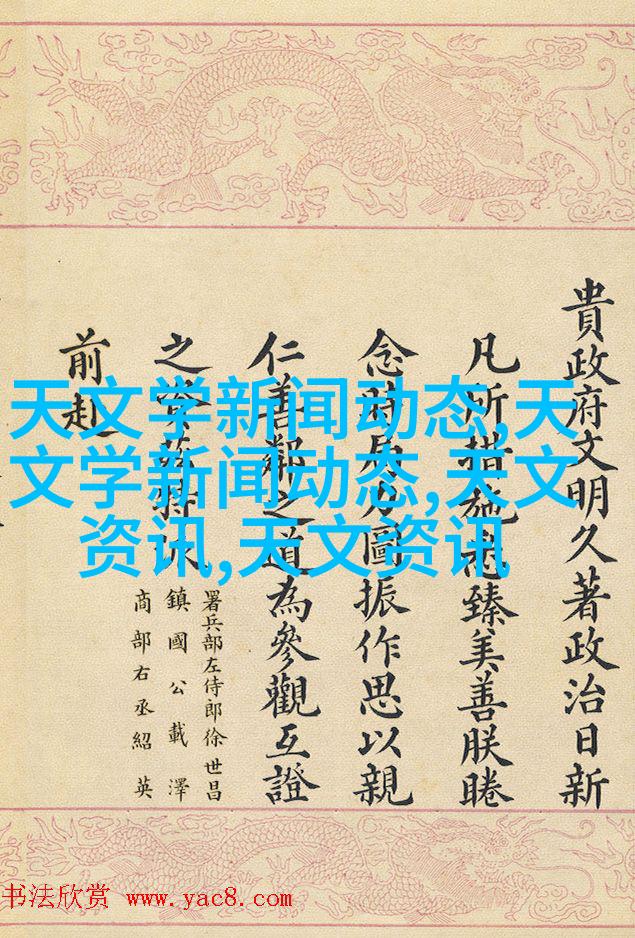 貴政府文明久著政治日新
凡所措施悉臻美善朕睠
念時局力圖振作思以親
仁善鄰之道為參觀互證
之資茲特派
署兵部左侍郎徐世昌
鎮國公載澤
商部右丞紹英
前赴
天文学新闻动态,天
文学新闻动态,天文
资讯,天文资讯
书法欣赏 www.yac8.com